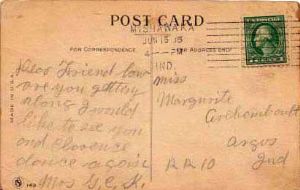 POST CARD
MISHAWAKA
JUN 15
4 - PM
IND.
FOR CORRESPONDENCE
FOR ADDRESS ONLY
Dear Friend how
are you getting
along I would
like to see you
and Florence
dance again
Mrs G. C. K.
Miss
Margurite
Archambault
Argos
Ind
R R 10
MADE IN U.S.A.